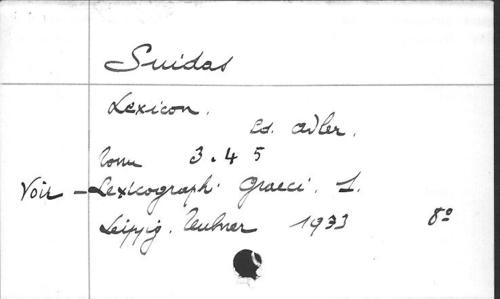 Suidas
Lexicon.
Ed. Adler.
Tom 3. 4 5
Voir - Lexicograph. Graeci. 1.
Leipzig. Teubner 1933 8º